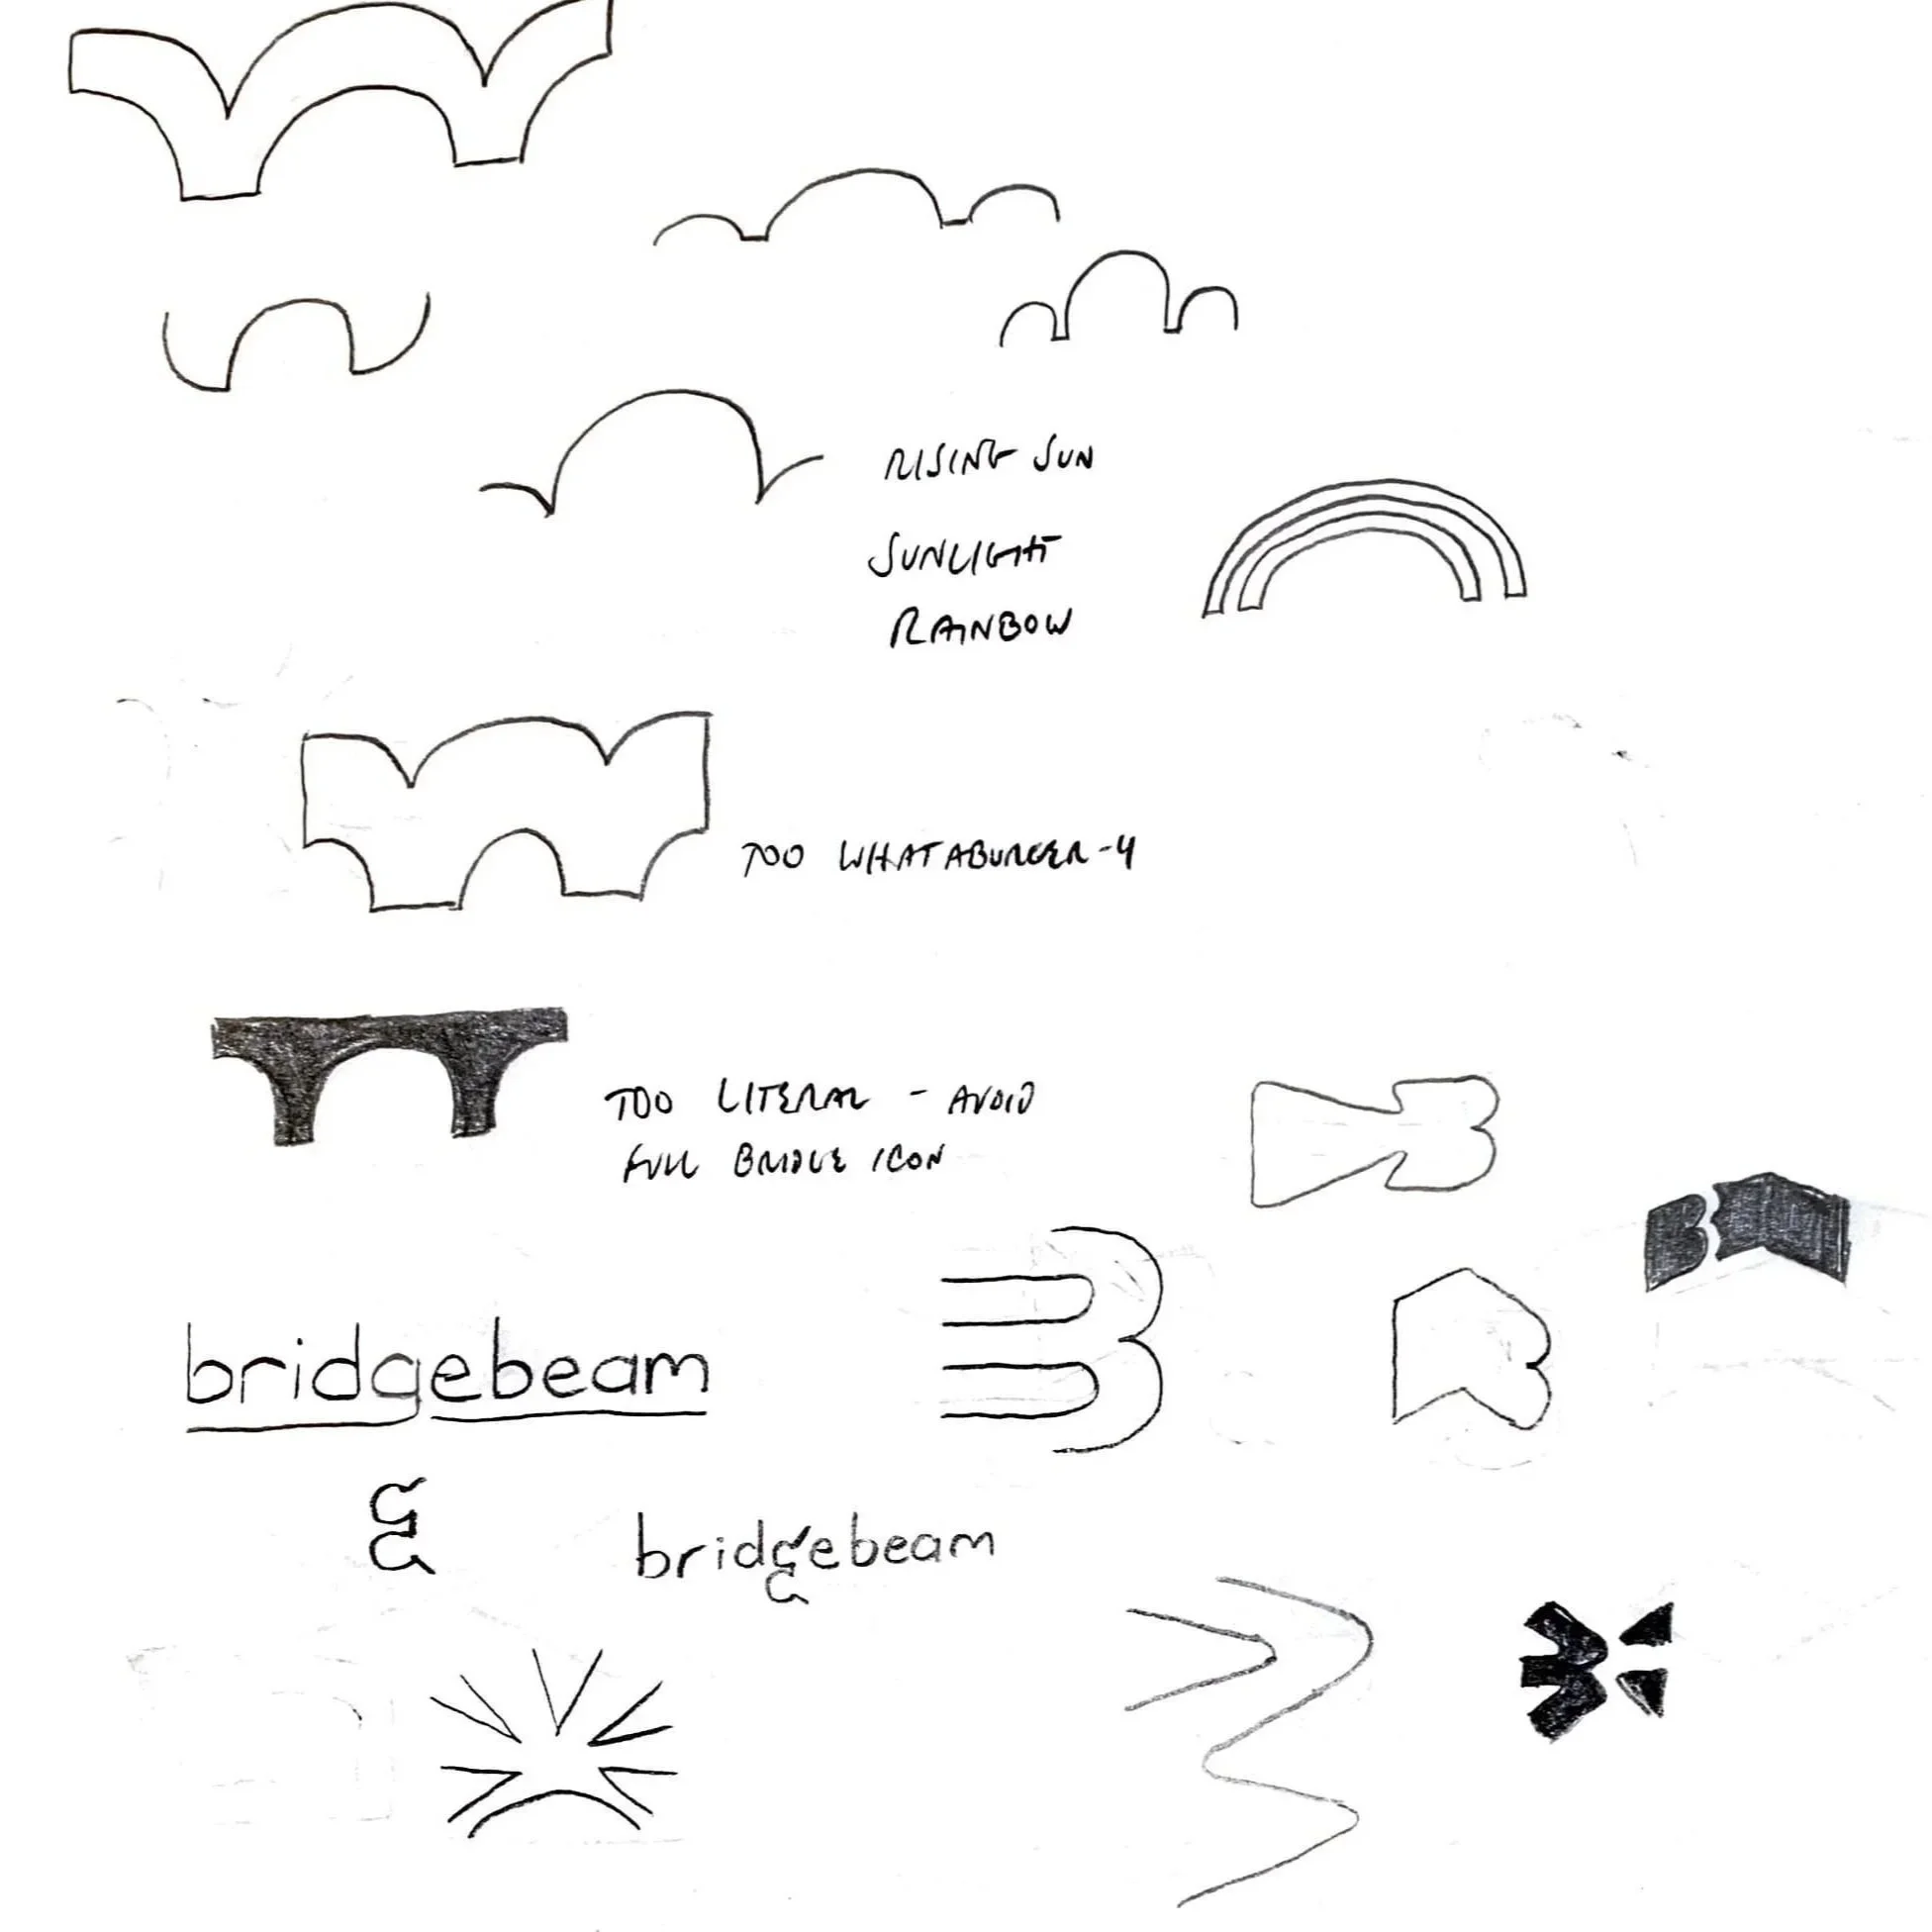 RISING SUN
SUNLIGHT
RAINBOW
TOO WHATABURGER-Y
TOO LITERAL - AVOID
FULL BRIDGE ICON
bridgebeam
bridgebeam